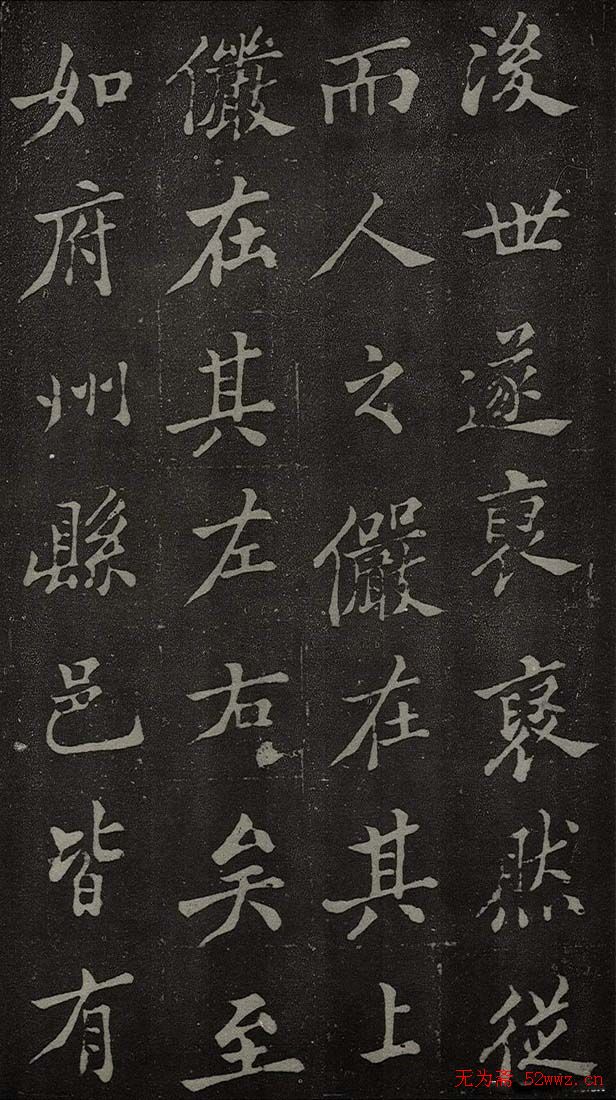 後世遂裒裒然從
而人之儼在其上
儼在其左右矣至
如府州縣邑皆有
无为斋 52wwz.cn